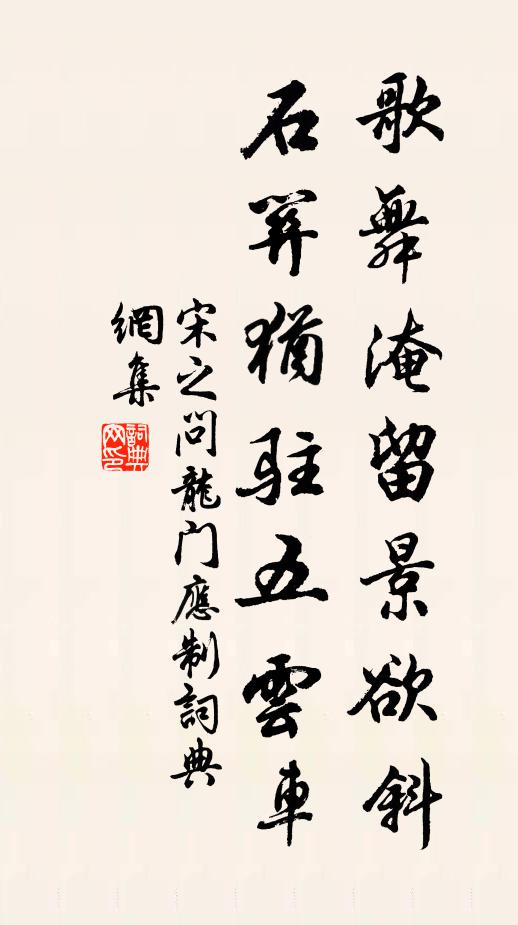 歌舞淹留景欲斜
石關猶駐五雲車
宋之问龍门應制詞典
網集
詞典网印